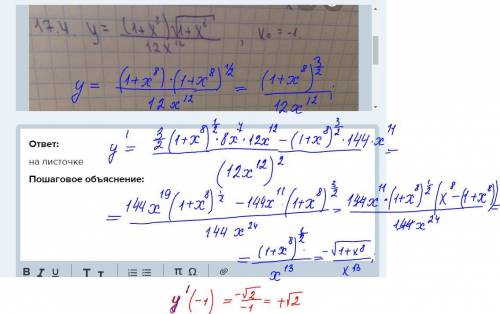 17.4. y = \frac{(1+x^8)\sqrt{1+x^8}}{12x^{12}}, x_0 = -1
y = \frac{(1+x^8)·(1+x^8)^{1/2}}{12x^{12}} = \frac{(1+x^8)^{\frac{3}{2}}}{12x^{12}};
Ответ:
на листочке
Пошаговое объяснение:
y' = \frac{\frac{3}{2}(1+x^8)^{\frac{1}{2}}·8x^7·12x^{12} - (1+x^8)^{\frac{3}{2}}·144·x^{11}}{(12x^{12})^2} =
= \frac{144x^{19}(1+x^8)^{\frac{1}{2}} - 144x^{11}·(1+x^8)^{\frac{3}{2}}}{144x^{24}} = \frac{144x^{11}·(1+x^8)^{\frac{1}{2}}(x^8-(1+x^8))}{144x^{24}} =
= \frac{(1+x^8)^{\frac{1}{2}}·}{x^{13}} = \frac{-\sqrt{1+x^8}}{x^{13}};
B I U Tт π Ω
y'(-1) = \frac{-\sqrt{2}}{-1} = +\sqrt{2}